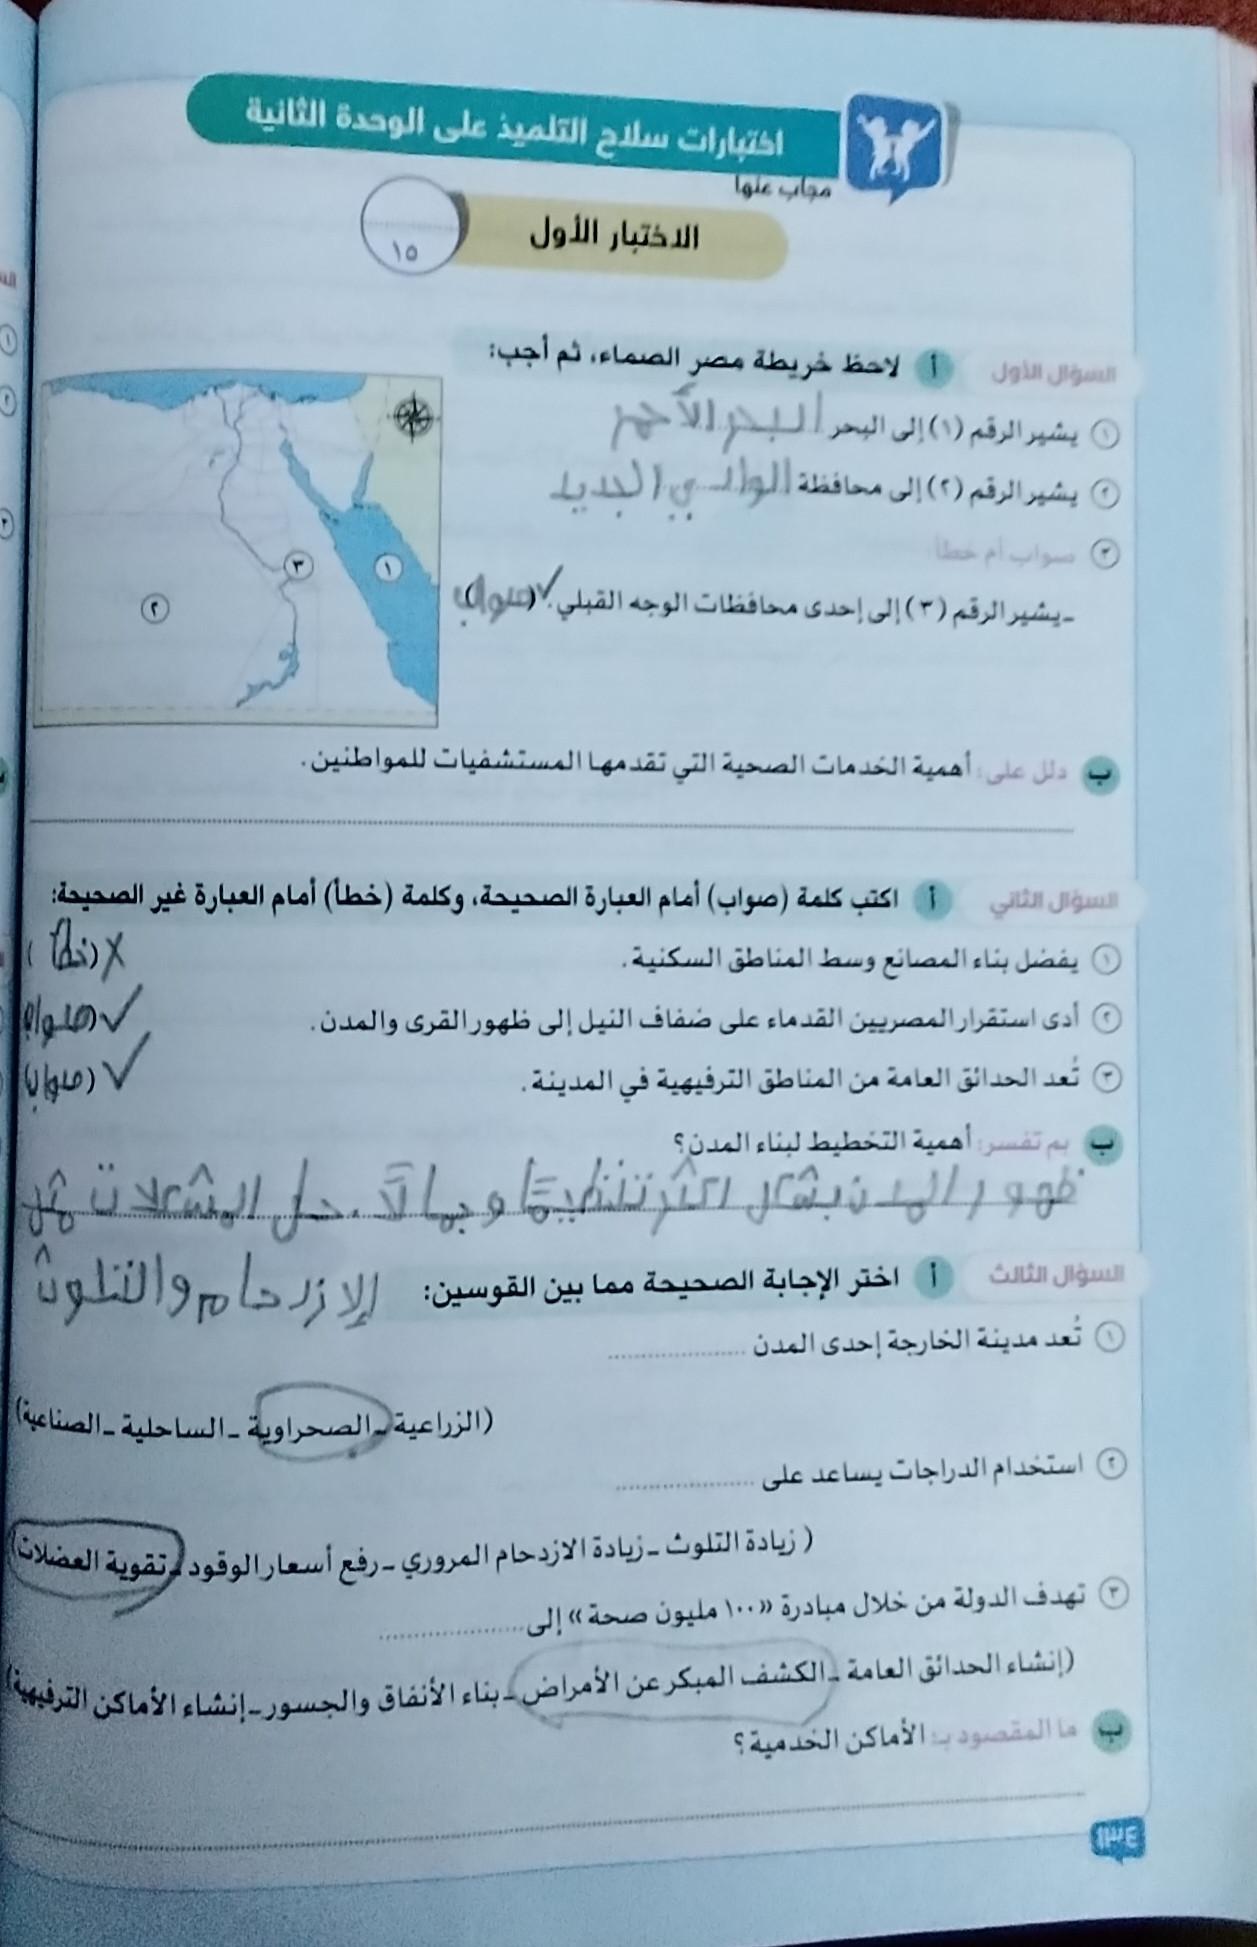 اختبارات سلاح التلميذ على الوحدة الثانية
مجاب عنها
الاختبار الأول
١٥
السؤال الأول أ لاحظ خريطة مصر الصماء، ثم أجب:
١ يشير الرقم (١) إلى البحر البحر الأحمر
٢ يشير الرقم (٢) إلى محافظة الوادي الجديد
٣ صواب أم خطأ:
- يشير الرقم (٣) إلى إحدى محافظات الوجه القبلي. ✓ (صواب)
٣
١
٢
ب دلل على: أهمية الخدمات الصحية التي تقدمها المستشفيات للمواطنين.
السؤال الثاني أ اكتب كلمة (صواب) أمام العبارة الصحيحة، وكلمة (خطأ) أمام العبارة غير الصحيحة:
١ يفضل بناء المصانع وسط المناطق السكنية. X (خطأ)
٢ أدى استقرار المصريين القدماء على ضفاف النيل إلى ظهور القرى والمدن. ✓ (صواب)
٣ تُعد الحدائق العامة من المناطق الترفيهية في المدينة. ✓ (صواب)
ب بم تفسر: أهمية التخطيط لبناء المدن؟
ظهور المدن بشكل اكثر تنظيمًا وجمالًا. حل المشكلات مثل
الإزدحام والتلوث
السؤال الثالث أ اختر الإجابة الصحيحة مما بين القوسين:
١ تُعد مدينة الخارجة إحدى المدن ....................
(الزراعية - الصحراوية - الساحلية - الصناعية)
٢ استخدام الدراجات يساعد على ....................
(زيادة التلوث - زيادة الازدحام المروري - رفع أسعار الوقود - تقوية العضلات)
٣ تهدف الدولة من خلال مبادرة «١٠٠ مليون صحة» إلى ....................
(إنشاء الحدائق العامة - الكشف المبكر عن الأمراض - بناء الأنفاق والجسور - إنشاء الأماكن الترفيهية)
ب ما المقصود بـ: الأماكن الخدمية؟
١٣٤